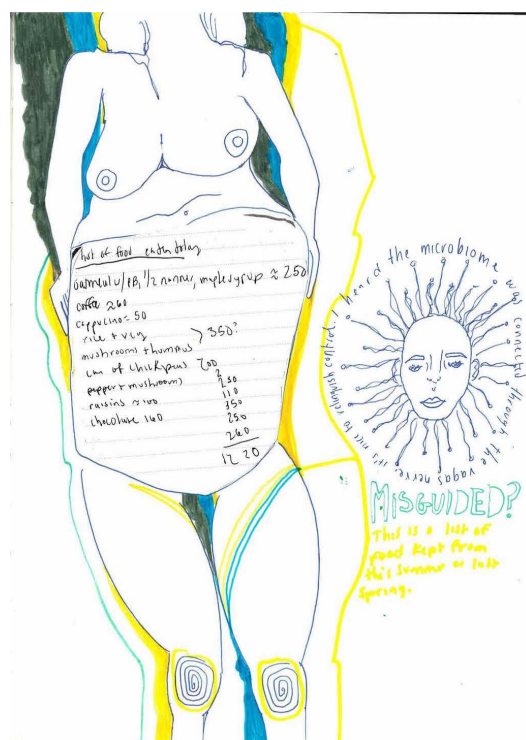 list of food eaten today
oatmeal w/ PB, 1/2 nanner, maple syrup ≈ 250
coffee 260
cappucino = 50
rice + veg
mushrooms + humus > 350?
can of chickpeas 200
pepper + mushrooms
raisins ≈ 100
chocolate 160
250
110
350
250
260
1220
I heard the microbiome was connected through the vagas nerve. it's nice to relinquish control..
MISGUIDED?
This is a list of
food kept from
this summer or last
spring.